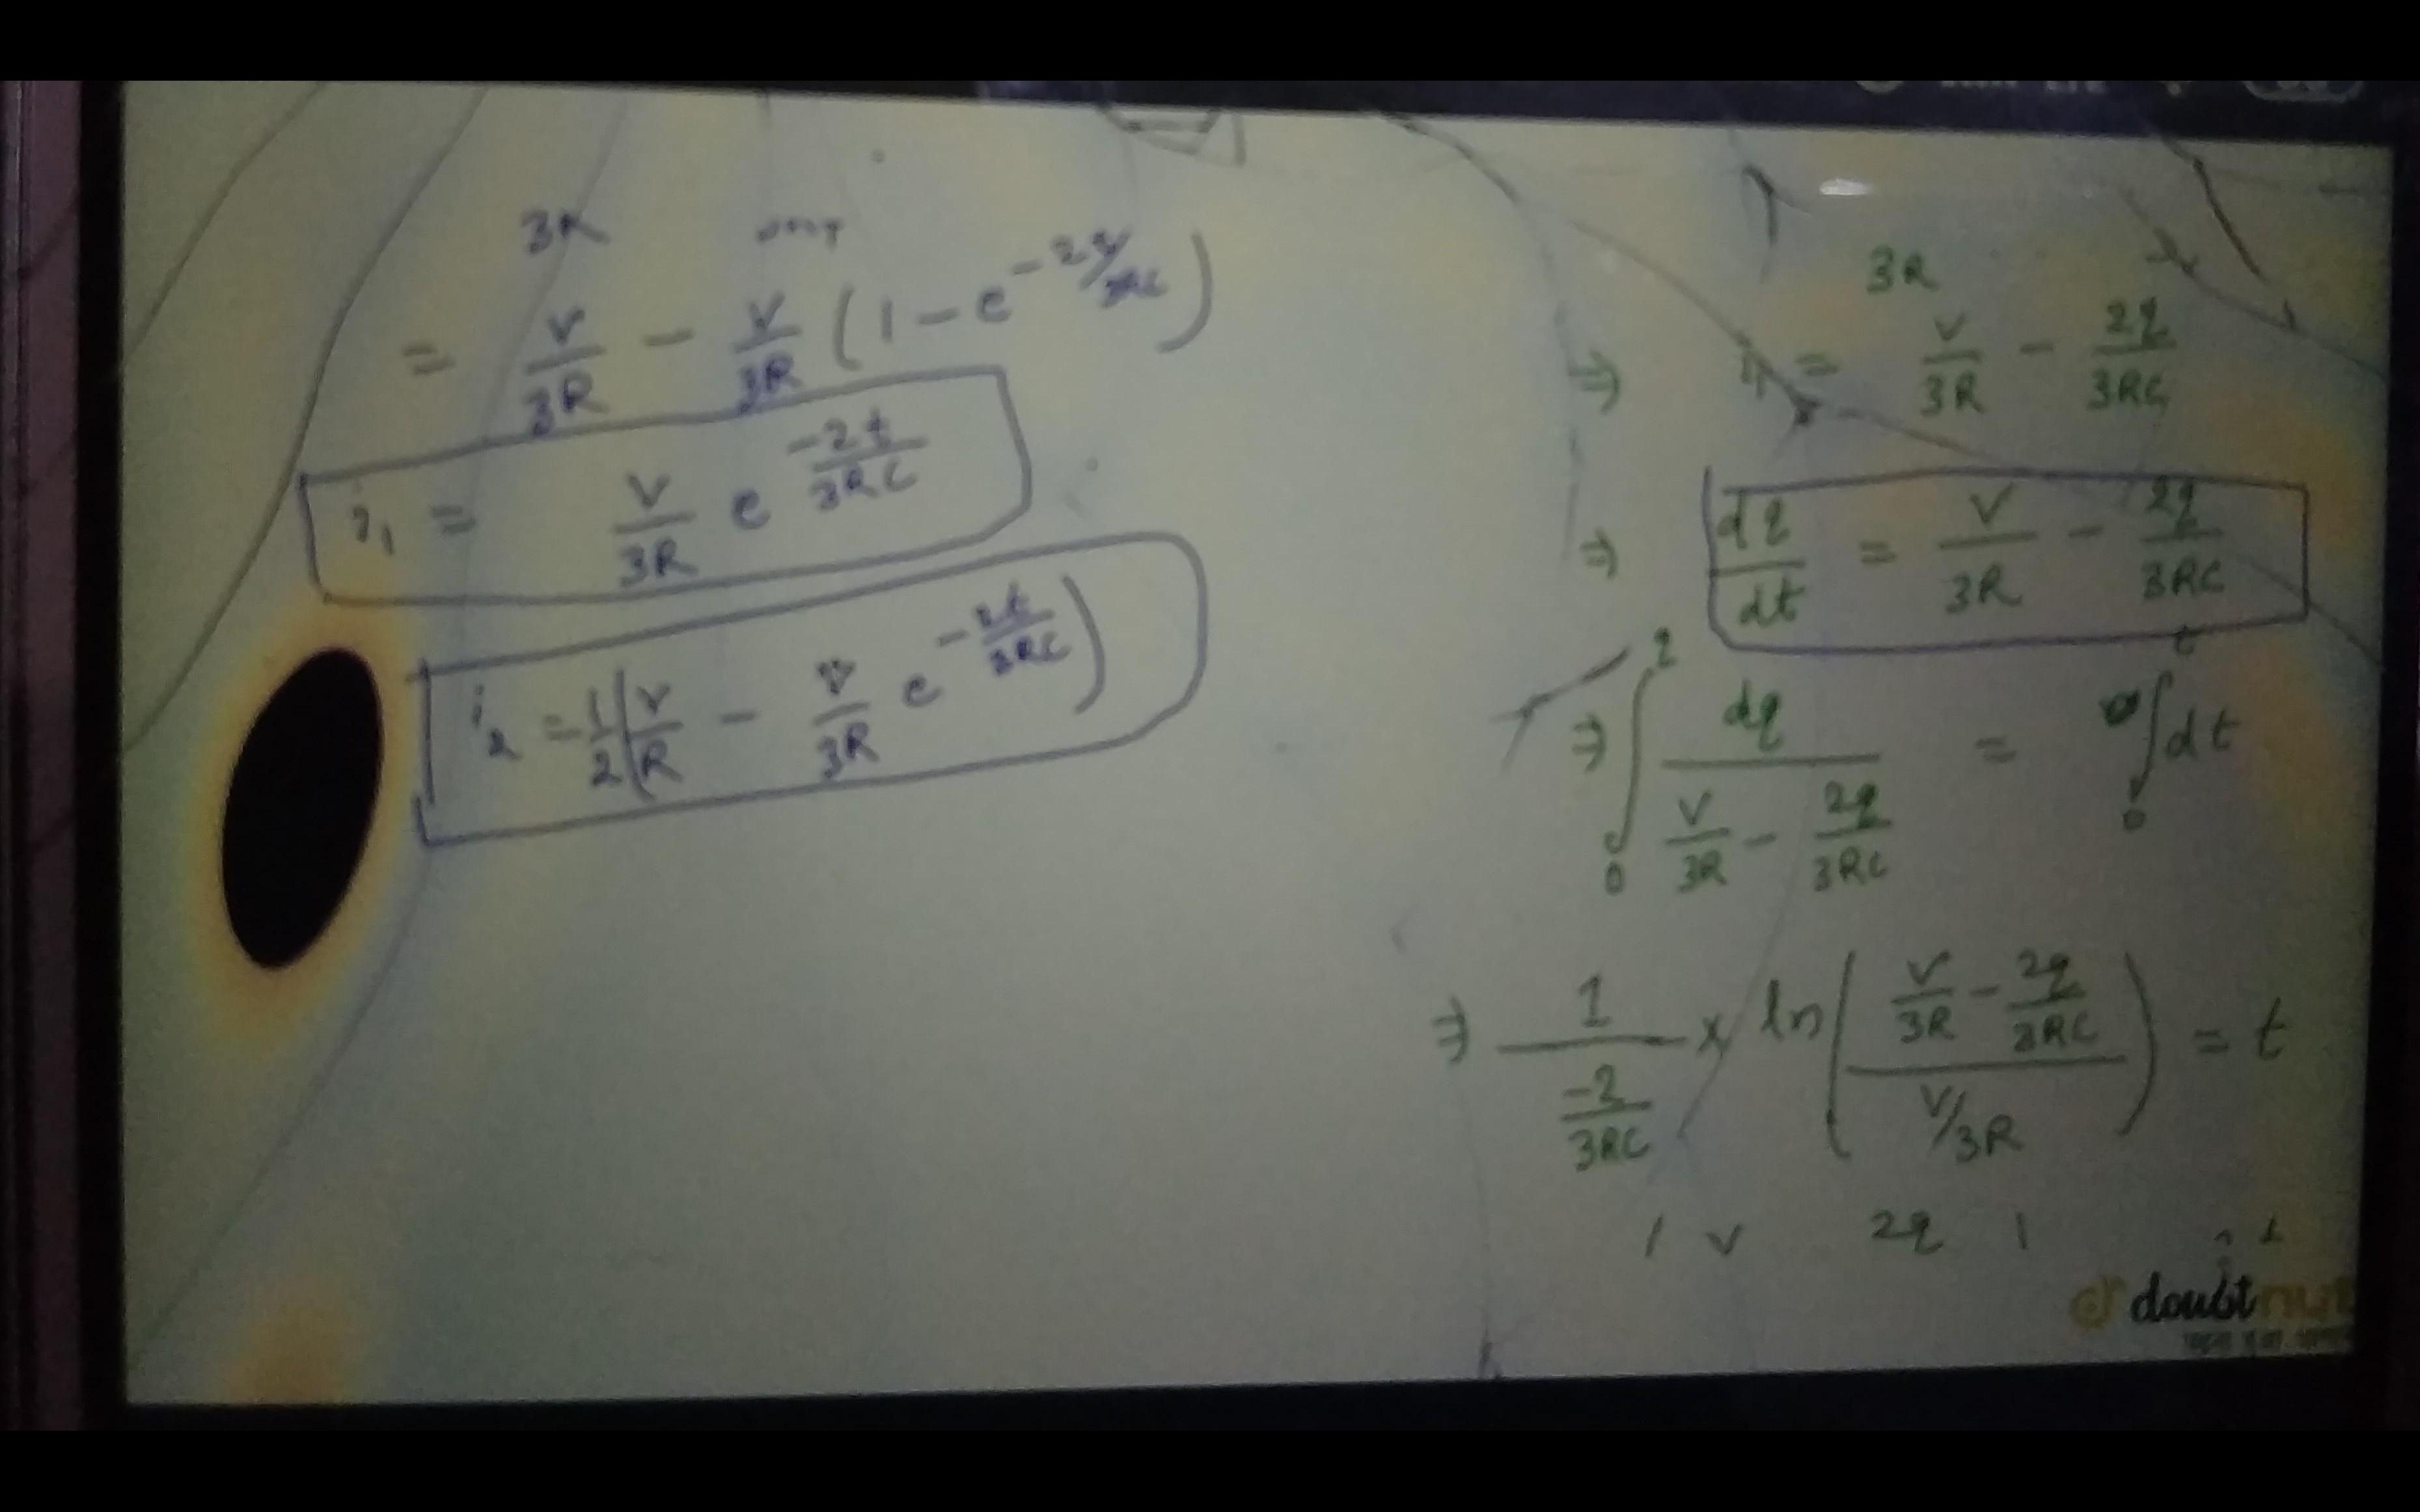 3R
= V/3R - V/3R (1 - e^(-2q/3RC))
i₁ = V/3R e^(-2t/3RC)
i₂ = 1/2 (V/R - V/3R e^(-2t/3RC))
3R
⇒ i₁ = V/3R - 2q/3RC
⇒ dq/dt = V/3R - 2q/3RC
⇒ ∫₀^q dq / (V/3R - 2q/3RC) = ∫₀^t dt
⇒ 1/(-2/3RC) × ln((V/3R - 2q/3RC) / (V/3R)) = t
V 2q
doubtnut